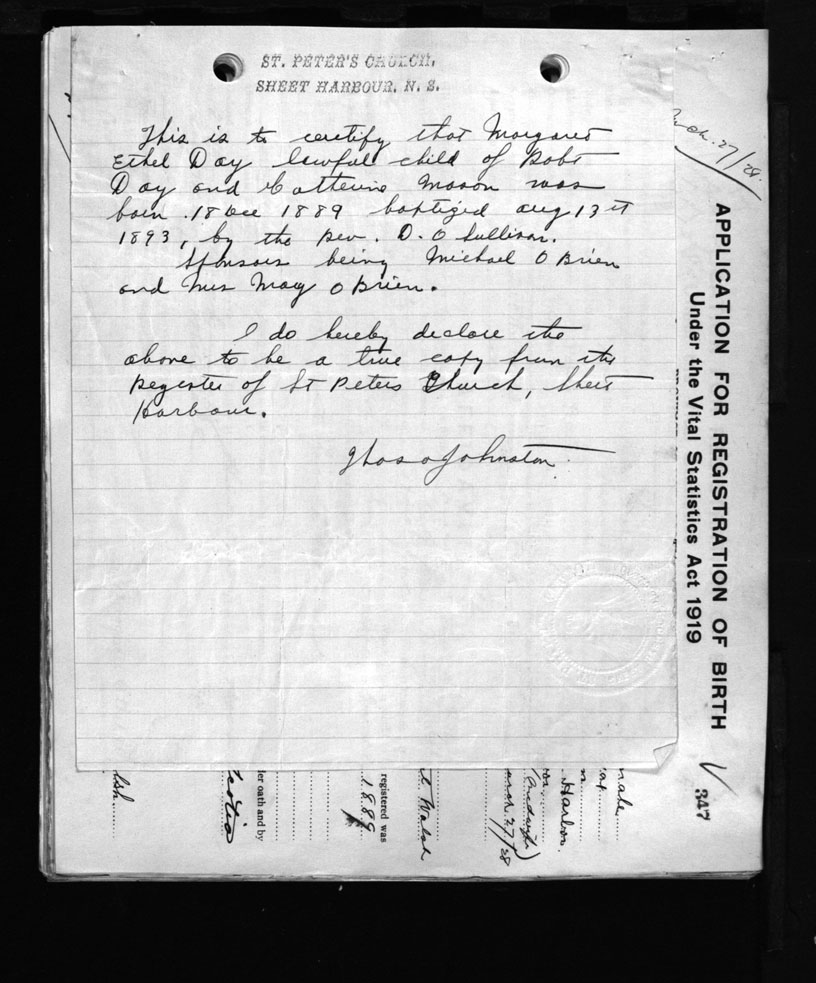 ST. PETER'S CHURCH,
SHEET HARBOUR, N. S.
This is to certify that Margaret
Ethel Day lawful child of Robt
Day and Catherine Mason was
born 18 Dec 1889 baptized aug 13th
1893, by the Rev. D. O Sullivan.
Sponsors being Michael O Brien
and Mrs May O Brien.
I do hereby declare the
above to be a true copy from the
Register of St Peters Church, Sheet
Harbour.
Johnston
27/28.
APPLICATION FOR REGISTRATION OF BIRTH
Under the Vital Statistics Act 1919
347
Harbor
27/28
Walsh
registered was
1889
der oath and by
Scotia
lsh